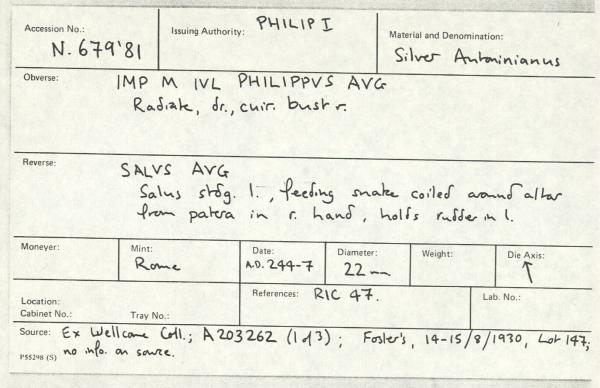 Accession No.: N. 679'81
Issuing Authority: PHILIP I
Material and Denomination: Silver Antoninianus
Obverse: IMP M IVL PHILIPPVS AVG
Radiate, dr., cuir. bust r.
Reverse: SALVS AVG
Salus stdg. l., feeding snake coiled around altar
from patera in r. hand, holds rudder in l.
Moneyer:
Mint: Rome
Date: A.D. 244-7
Diameter: 22 mm
Weight:
Die Axis: ↑
Location:
Cabinet No.: Tray No.:
References: RIC 47.
Lab. No.:
Source: Ex Wellcome Coll.; A203262 (1 of 3); Foster's, 14-15/8/1930, Lot 147;
no info. on source.
PS5298 (S)